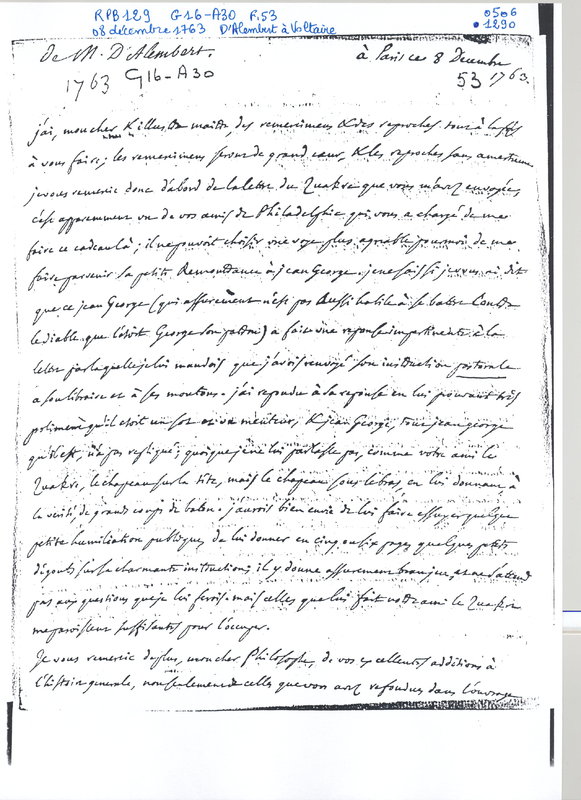 RPB129 G16-A30 F.53
0506
08 décembre 1763 D'Alembert à Voltaire
• 1290
de M. D'Alembert.
à Paris ce 8 Decembre
1763 G16-A30
53 1763.
j'ai, mon cher & illustre maitre, des remerimens & des reproches tout à la fois
à vous faire; les remerimens seront de grand coeur, & les reproches sans amertume
je vous remercie donc d'abord de la lettre du Quakre que vous m'avez envoyée,
c'est apparemment un de vos amis de Philadelphie qui vous a chargé de me
faire ce cadeau là; il ne pouvoit choisir une voye plus agréable pour moi de me
faire parvenir sa petite Remontrance à jean George. je ne sais si je vous ai dit
que ce jean George (qui assurément n'est pas aussi habile à se battre contre
le diable que l'étoit George son patron) a fait une reponse impertinente à la
lettre par laquelle je lui mandois que j'avois renvoyé son instruction pastorale
à son libraire et à ses moutons. j'ai repondu à la reponse en lui prouvant très
poliment qu'il étoit un sot et un menteur, & jean George, tout jean george
qu'il est, n'a pas repliqué; quoique je ne lui parlasse pas, comme votre ami le
Quakre, le chapeau sur la tête, mais le chapeau sous le bras, en lui donnant à
la vérité, de grands coups de baton. j'aurois bien envie de lui faire essuyer quelque
petite humiliation publique, de lui donner en cinq ou six pages quelques petits
dégouts sur sa charmante instruction; il y donne assurement beau jeu, et ne s'attend
pas aux questions que je lui ferois. mais celles que lui fait votre ami le Quakre
me paroissent suffisantes pour l'occuper.
Je vous remercie de plus, mon cher Philosophe, de vos excellentes additions à
l'histoire generale, non seulement de celles que vous avez refondues dans l'ouvrage